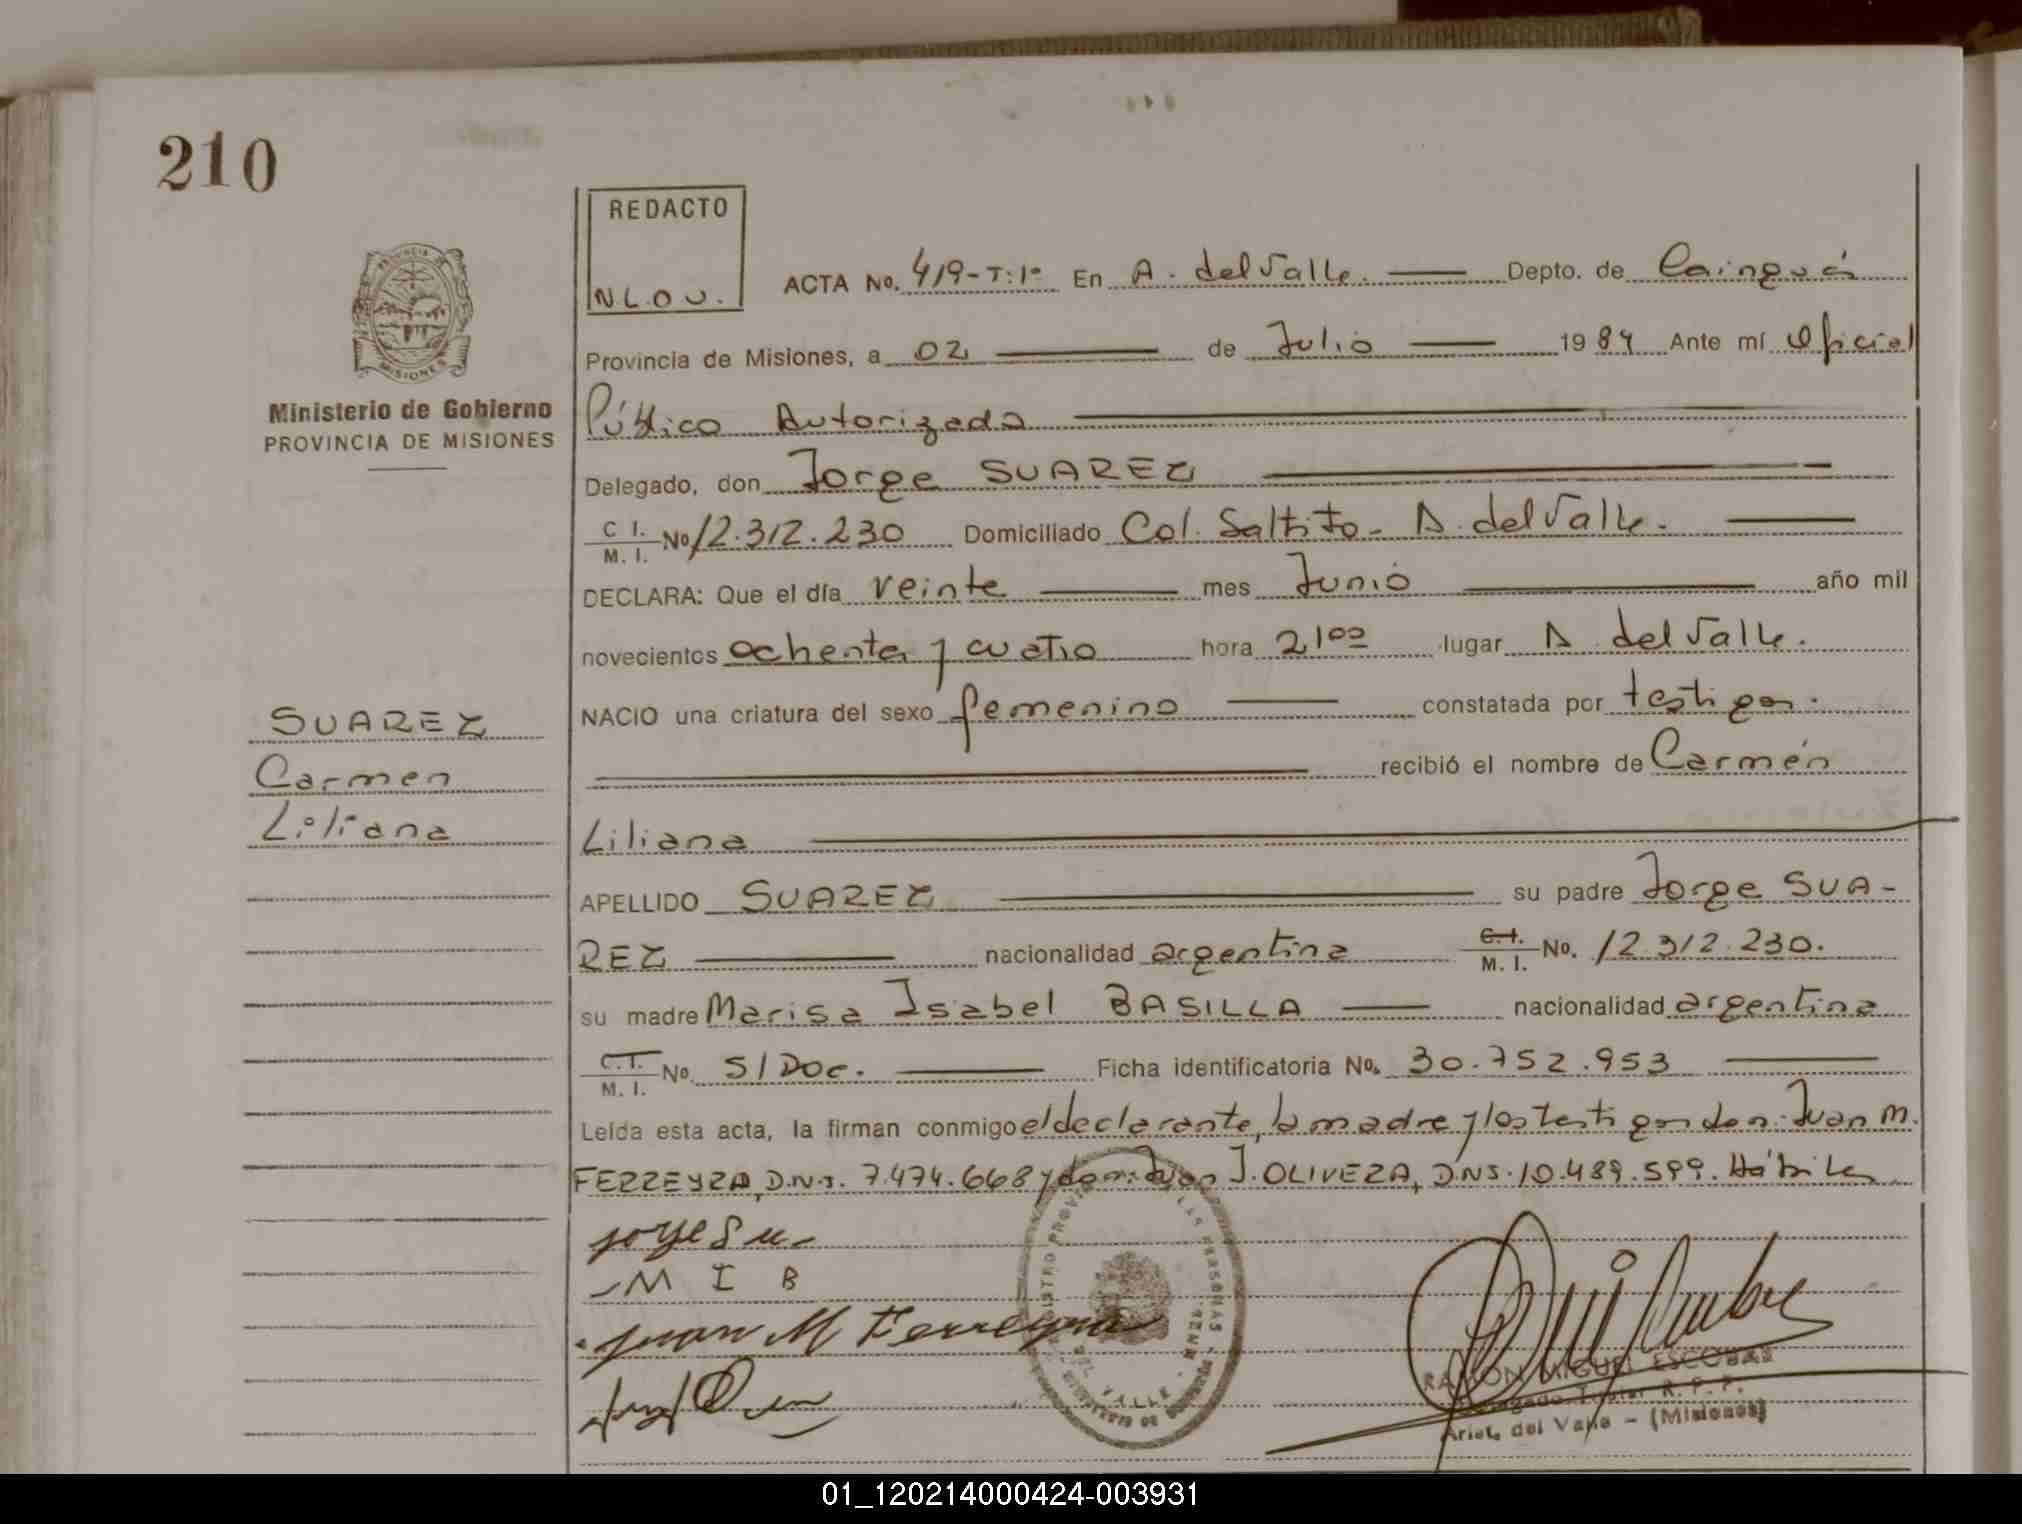 210
REDACTO
N L. O U.
ACTA No. 419-T:1º En A. del Valle. Depto. de Cainguás
Provincia de Misiones, a 02 de Julio 1984 Ante mí Oficial
Público Autorizada
Delegado, don Jorge SUAREZ
C I. M. I. No 12.312.230 Domiciliado Col. Saltito - A. del Valle.
DECLARA: Que el día veinte mes Junio año mil
novecientos ochenta y cuatro hora 21ºº lugar A del Valle.
NACIO una criatura del sexo femenino constatada por testigos.
recibió el nombre de Carmén
Liliana
APELLIDO SUAREZ su padre Jorge SUA-
REZ nacionalidad argentina C.I. M. I. No. 12.312.230.
su madre Marisa Isabel BASILLA nacionalidad argentina
C.I. M. I. No. S/Doc. Ficha identificatoria No. 30.752.953
Leída esta acta, la firman conmigo el declarante, la madre y los testigos don: Juan M.
FERREYRA, D.N.I. 7.474.668 y don: Juan J. OLIVERA, DNI. 10.489.599. Hábiles
jorge Su
M I B
Juan M Ferreyra
RAMON MIGUEL ESCOBAR
Delegado Titular R. P. P.
Arist. del Valle - (Misiones)
PROVINCIA DE
MISIONES
Ministerio de Gobierno
PROVINCIA DE MISIONES
SUAREZ
Carmen
Liliana
01_120214000424-003931